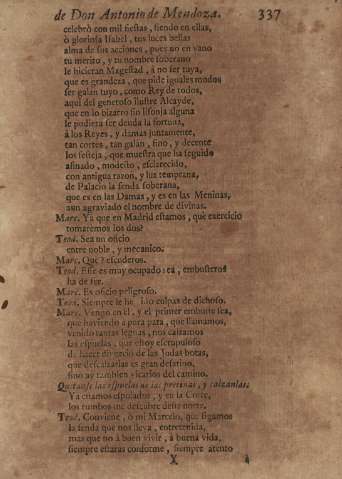 de Don Antonio de Mendoza. 337
celebrò con mil fiestas, siendo en ellas,
ò gloriosa Isabel, tus luces bellas
alma de sus acciones, pues no en vano
tu merito, y tu nombre soberano
le hizieran Magestad, à no ser tuya,
que es grandeza, que pide iguales modos
ser galan tuyo, como Rey de todos,
aqui del generoso ilustre Alcayde,
que en lo bizarro sin lisonja alguna
se pudiera ser deuda la fortuna,
à los Reyes, y damas juntamente,
tan cortes, tan galan, fino, y decente
los festeja, que muestra que ha seguido
afinado, modesto, esclarecido,
con antigua razon, y luz temprana,
de Palacio la senda soberana,
que es en las Damas, y es en las Meninas,
aun agraviado el nombre de divinas.
Marc. Ya que en Madrid estamos, què exercicio
tomaremos los dos?
Tend. Sea un oficio
entre noble, y mecanico.
Marc. Què? escuderos.
Tend. Esse es muy ocupado: ea, embusteros
ha de ser.
Marc. Es oficio peligroso.
Tend. Siempre le he sido culpas de dichoso.
Marc. Vengo en èl, y el primer embuste sea,
que haviendo à pura pata, que llamamos,
venido tantas leguas, nos calzamos
las espuelas, que estoy escrupuloso
de hacer divorcio de las Judas botas,
que descalzarlas es gran desatino,
sino ay tambien vicarios del camino.
Quitanse las espuelas de las pretinas, y calzanlas.
Ya estamos espolados, y en la Corte,
los rumbos me descubre deste norte.
Tend. Conviene, ò mi Marcelo, que sigamos
la senda que nos lleva, entretenida,
mas que no à buen vivir, à buena vida,
siempre estaras conforme, siempre atento
X a